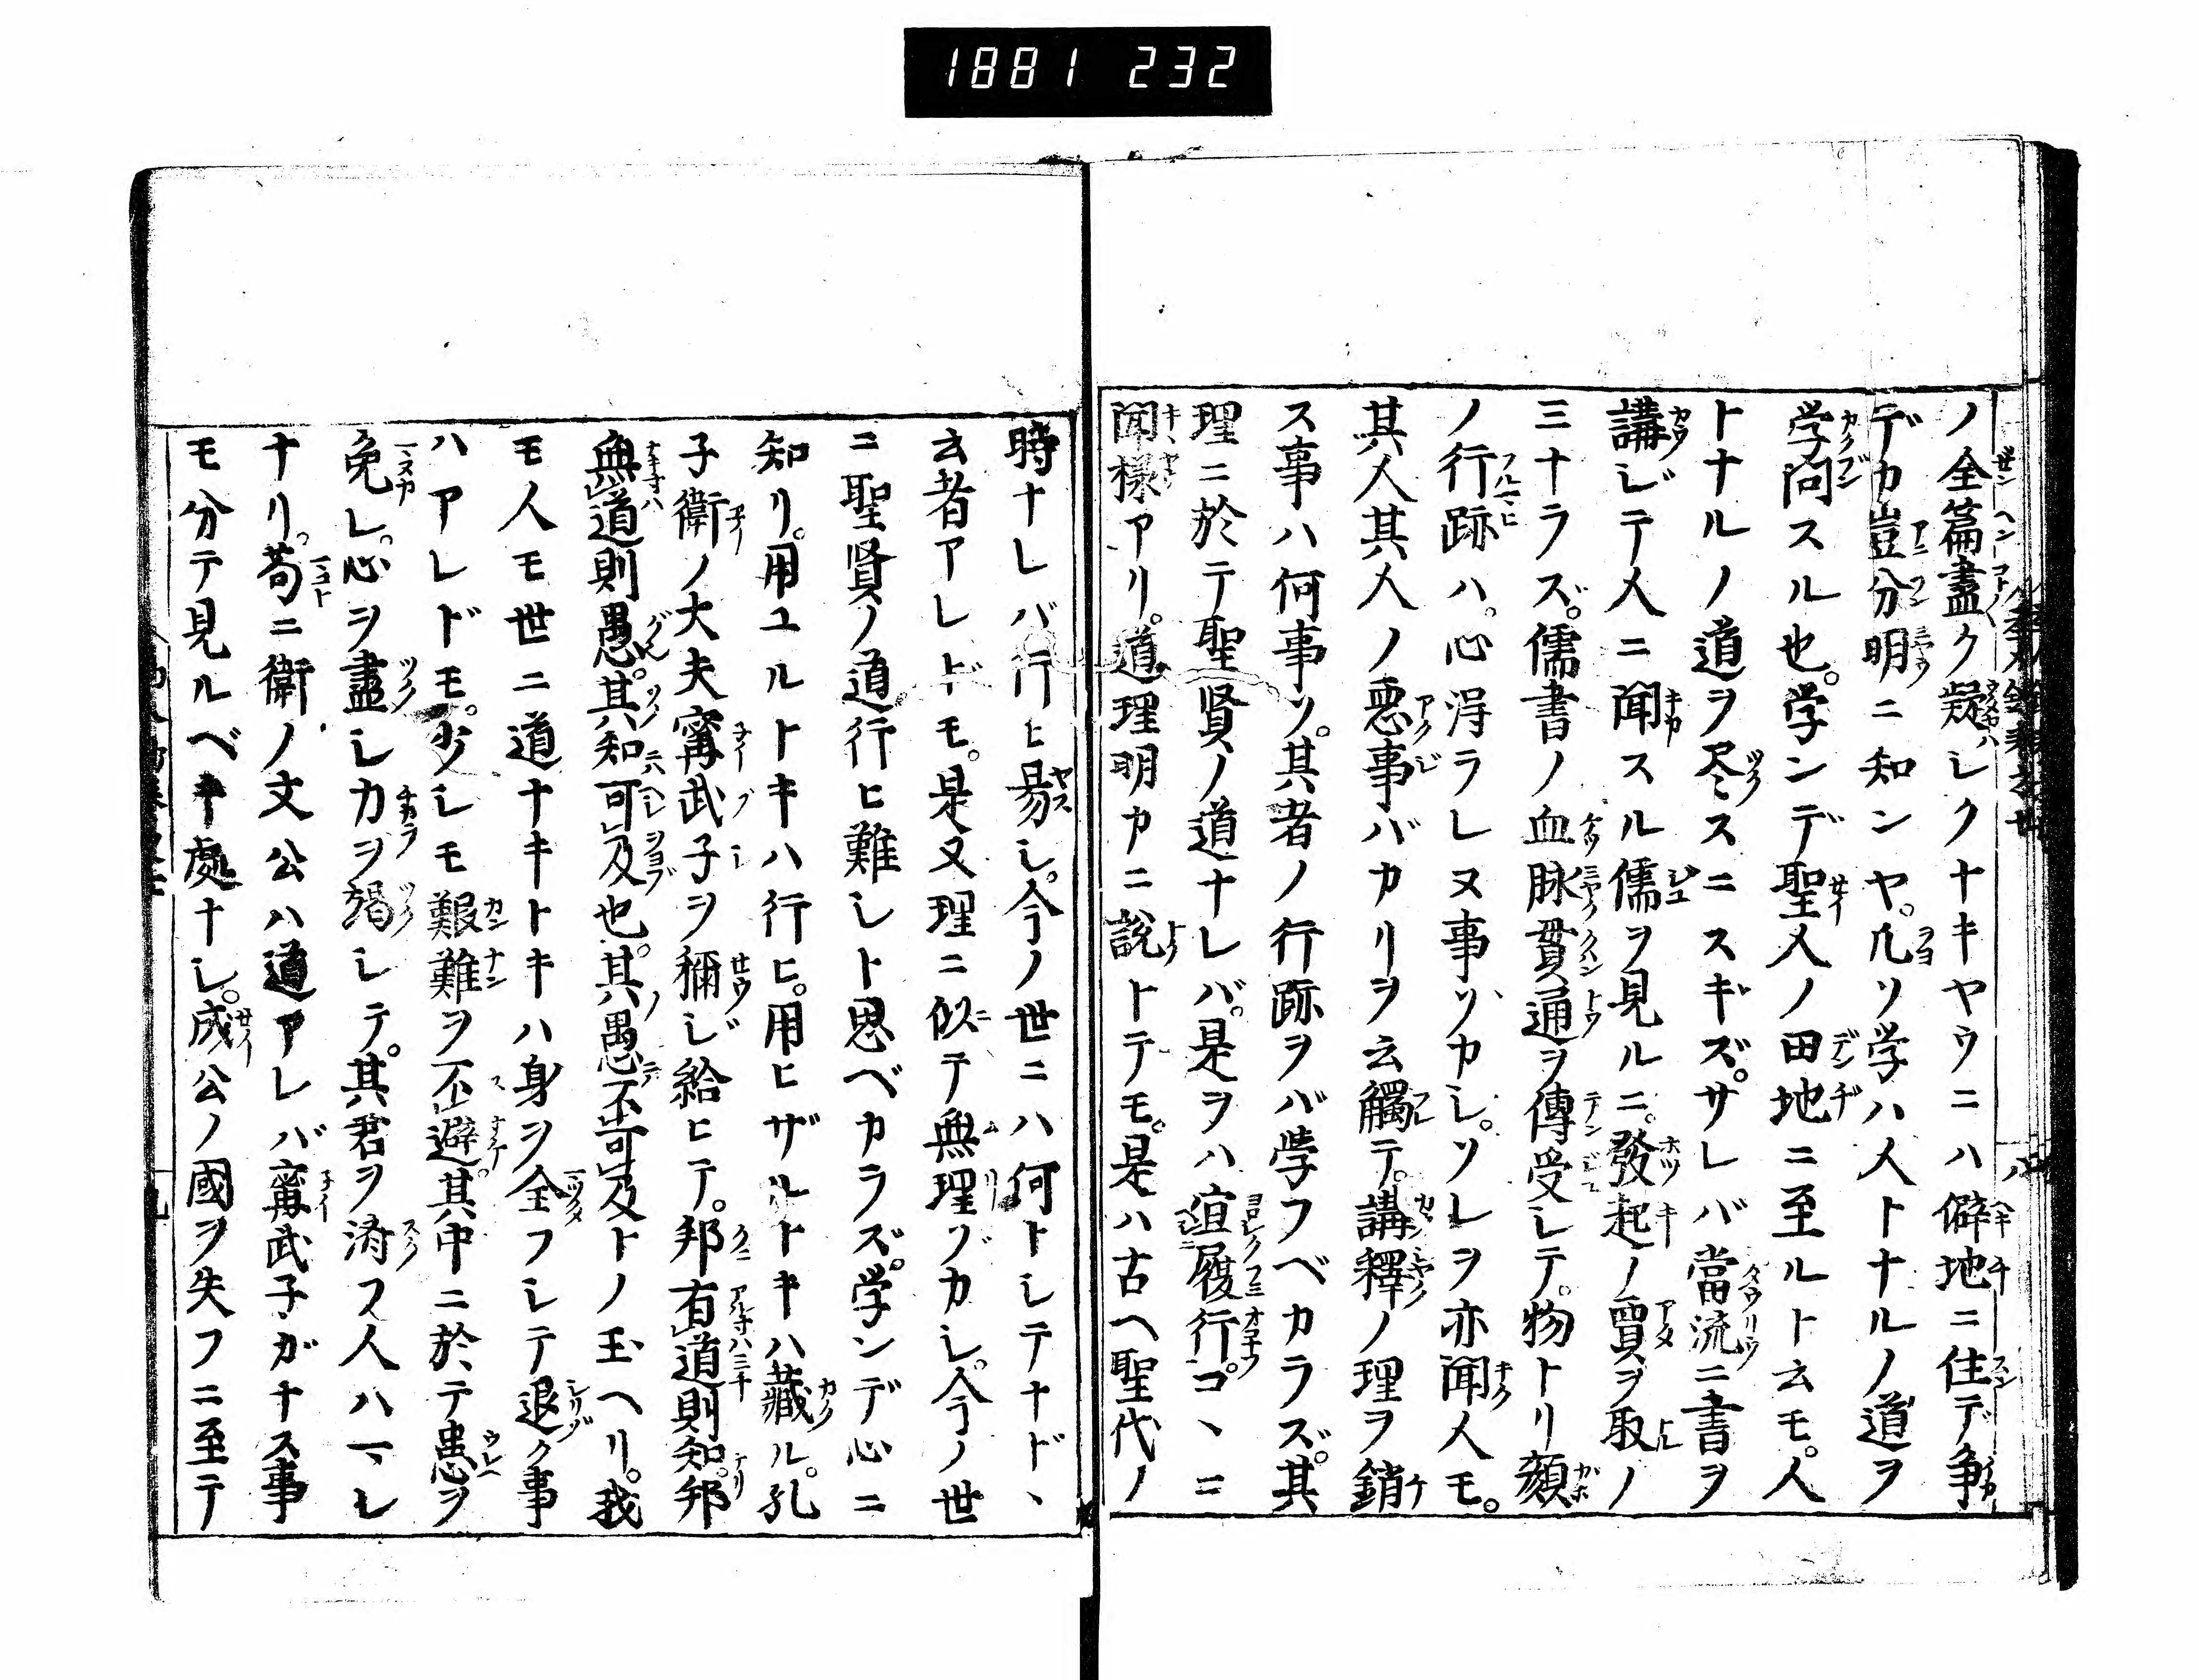 1881 232
ノ全篇盡ク疑シクナキヤウニハ僻地ニ住デ争
デカ豈分明ニ知ンヤ。凢ソ学ハ人トナルノ道ヲ
学問スル也。学ンデ聖人ノ田地ニ至ルト云モ。人
トナルノ道ヲ尽スニスギズ。サレバ當流ニ書ヲ
講ジテ人ニ聞スル儒ヲ見ルニ。發起ノ賈ヲ取ノ
三ナラズ。儒書ノ血脉貫通ヲ傳受シテ。物トリ顔
ノ行跡ハ。心得ラレヌ事ソカシ。ソレヲ亦聞人モ。
其人其人ノ悪事バカリヲ云觸テ。講釋ノ理ヲ銷
ス事ハ何事ソ。其者ノ行跡ヲバ学フベカラズ。其
理ニ於テ聖賢ノ道ナレバ。是ヲハ宜履行。コヽニ
聞様アリ。道理明カニ説トテモ。是ハ古ヘ聖代ノ
時ナレバ行ヒ易シ。今ノ世ニハ何トシテナドヽ
云者アレドモ。是又理ニ似テ無理ゾカシ。今ノ世
ニ聖賢ノ道行ヒ難シト思ベカラズ。学ンデ心ニ
知リ。用ユルトキハ行ヒ。用ヒザルトキハ藏ル。孔
子衛ノ大夫甯武子ヲ稱ジ給ヒテ。邦有道則知。邦
無道則愚。其知可及也。其愚不可及トノ玉ヘリ。我
モ人モ世ニ道ナキトキハ身ヲ全フシテ退ク事
ハアレドモ。少シモ艱難ヲ不避。其中ニ於テ患ヲ
免レ。心ヲ盡シカヲ竭シテ。其君ヲ済フ人ハマレ
ナリ。苟ニ衛ノ文公ハ道アレバ甯武子ガナス事
モ分テ見ルベキ處ナシ。成公ノ國ヲ失フニ至テ